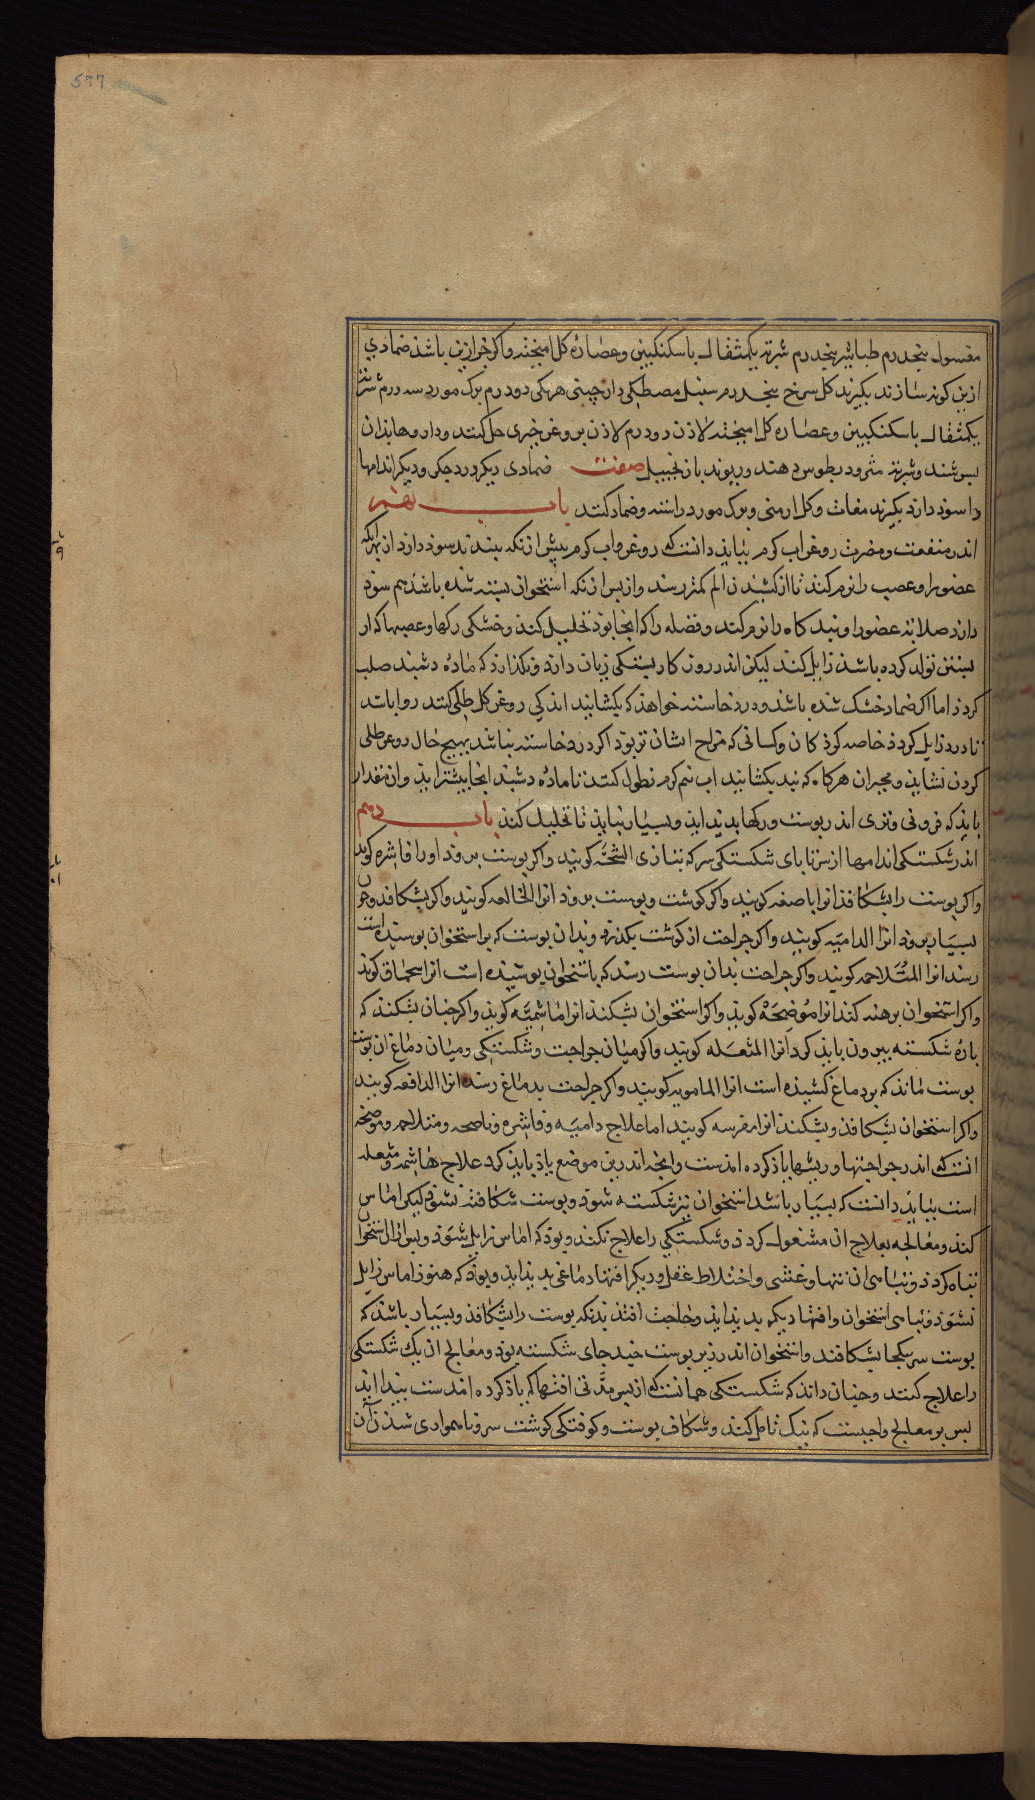 577
مغسول پنجدرم طباشیر پنجدرم شربته یکمثقال باسکنکبین وعصاره کل امیخته واکر حرارتی باشد ضمادی
ازین کونه سازند بکیرند کل سرخ پنجدرم سنبل مصطکی دارچینی هریکی دودرم برک مورد سه درم شربته
یکمثقال باسکنکبین وعصاره کل امیخته لاذن دودرم لاذن بروغن خیری حل کنند وداروها بذان
بسرشند وشربته مثرودیطوس دهند وریوند بازنجبیل صفت ضمادی دیکر درد جکر ودیکر اندامها
را سوذ دارد بکیرند مغاث وکل ارمنی وبرک مورد راسته وضماد کنند باب نهم
اندر منفعت ومضرت روغن واب کرم بباید دانست که روغن واب کرم پیش ازانکه ببندند سوذ دارد از بهر انکه
عضو را وعصب را نرم کند تا از کشیدن الم کمتر رسد وازپس ازنکه استخوان بسته شده باشد هم سوذ
دارد صلابت عضو را وبندکاه را نرم کند وفضله را که انجا بوذ تحلیل کند وخشکی رکها وعصبها که از
بستن تولد کرده باشد زایل کند لیکن اندر روزکار بستکی زیان دارد ونکذارد که ماده دشبد صلب
کردد اما اکر ضماد خشک شده باشد ودرد خاسته خواهد که بکشایند اندکی روغن کل طلی کنند روا باشد
تا درد زایل کردد خاصه کوذکان وکسانی که مزاج ایشان تر بوذ اکر درد خاسته نباشد بهیچ حال روغن طلی
کردن نشاید ومجبران هرکاه که بند بکشایند اب نیم کرم نطول کنند تا ماده دشبد انجا بیشتر اید وان مقدار
باید که فزونی وتری اندر پوست ورکها بدید اید وبسیار نباید تا تحلیل نکند باب دهم
اندر شکستکی اندامها از سر تا پای شکستکی سر که بتازی الشجه کویند واکر پوست برود اورا قاشره کویند
واکر پوست را بشکافد انرا باضعه کویند واکر کوشت وپوست برود انرا الخالعه کویند واکر بشکافد وخون
بسیار برود انرا الدامیه کویند واکر جراحت از کوشت بکذرد وبدان پوست که بر استخوان پوشیده است
رسد انرا المتلاحمه کویند واکر جراحت بدان پوست رسد که باستخوان پوشیده است انرا سمحاق کویند
واکر استخوان برهنه کند انرا موضحه کویند واکر استخوان بشکند انرا هاشمیه کویند واکر چنان بشکند که
پاره شکسته بیرون باید کرد انرا المثعله کویند واکر میان جراحت وشکستکی ومیان دماغ ان پوست
پوست ماند که بر دماغ کشیده است انرا المامویه کویند واکر جراحت بدماغ رسد انرا الدافعه کویند
واکر استخوان بشکافد وبشکند انرا مفرسه کویند اما علاج دامیه وقاشره وباضعه ومتلاحمه وموضحه
انست که اندر جراحتها وریشها یاذ کرده امدست وانچه اندرین موضع یاذ باید کرد علاج هاشمه ومثعله
است بباید دانست که بسیار باشد استخوان نیز شکسته شود وپوست شکافته نشود لیکن اماس
کند ومعالجه بعلاج ان مشغول کردد وشکستکی را علاج نکند وبوذ که اماس زایل شود وپس ازان استخوان
تباه کردد وتباهی ان تبها وغشی واختلاط عقل ودیکر افتها دماغی بدید اید وبوذ که هنوز اماس زایل
نشود وتباهی استخوان وافتها دیکر بدید اید وحاجت افتد بدانکه پوست را بشکافد وبسیار باشد که
پوست سر یکجا بشکافد واستخوان اندر زیر پوست چند جای شکسته بوذ ومعالج ان یک شکستکی
را علاج کند وچنان داند که شکستکی همانست که ازپس مدتی افتها که یاذ کرده امدست بیدا اید
پس بر معالج واجبست که نیک تامل کند وشکاف پوست وکوفتکی کوشت سر وناهمواری شدن آن
باب ٩
باب ١٠